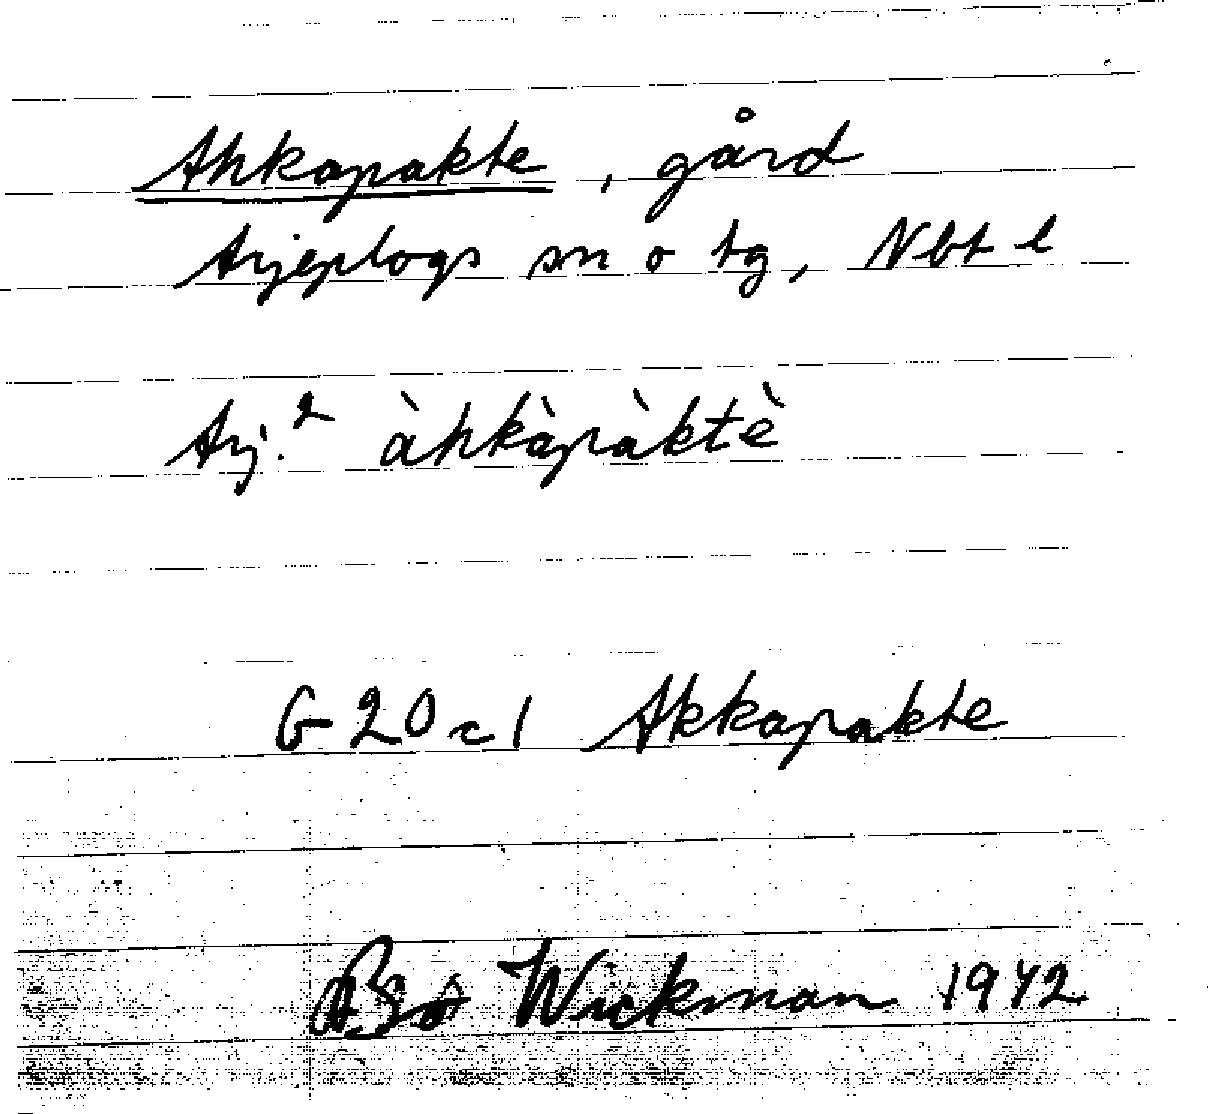 Ahkapakte, gård
Arjeplogs sn o tg, Nbt l
Arj.² àhkàpàktè
G 20 c 1 Akkapakte
Bo Wickman 1942